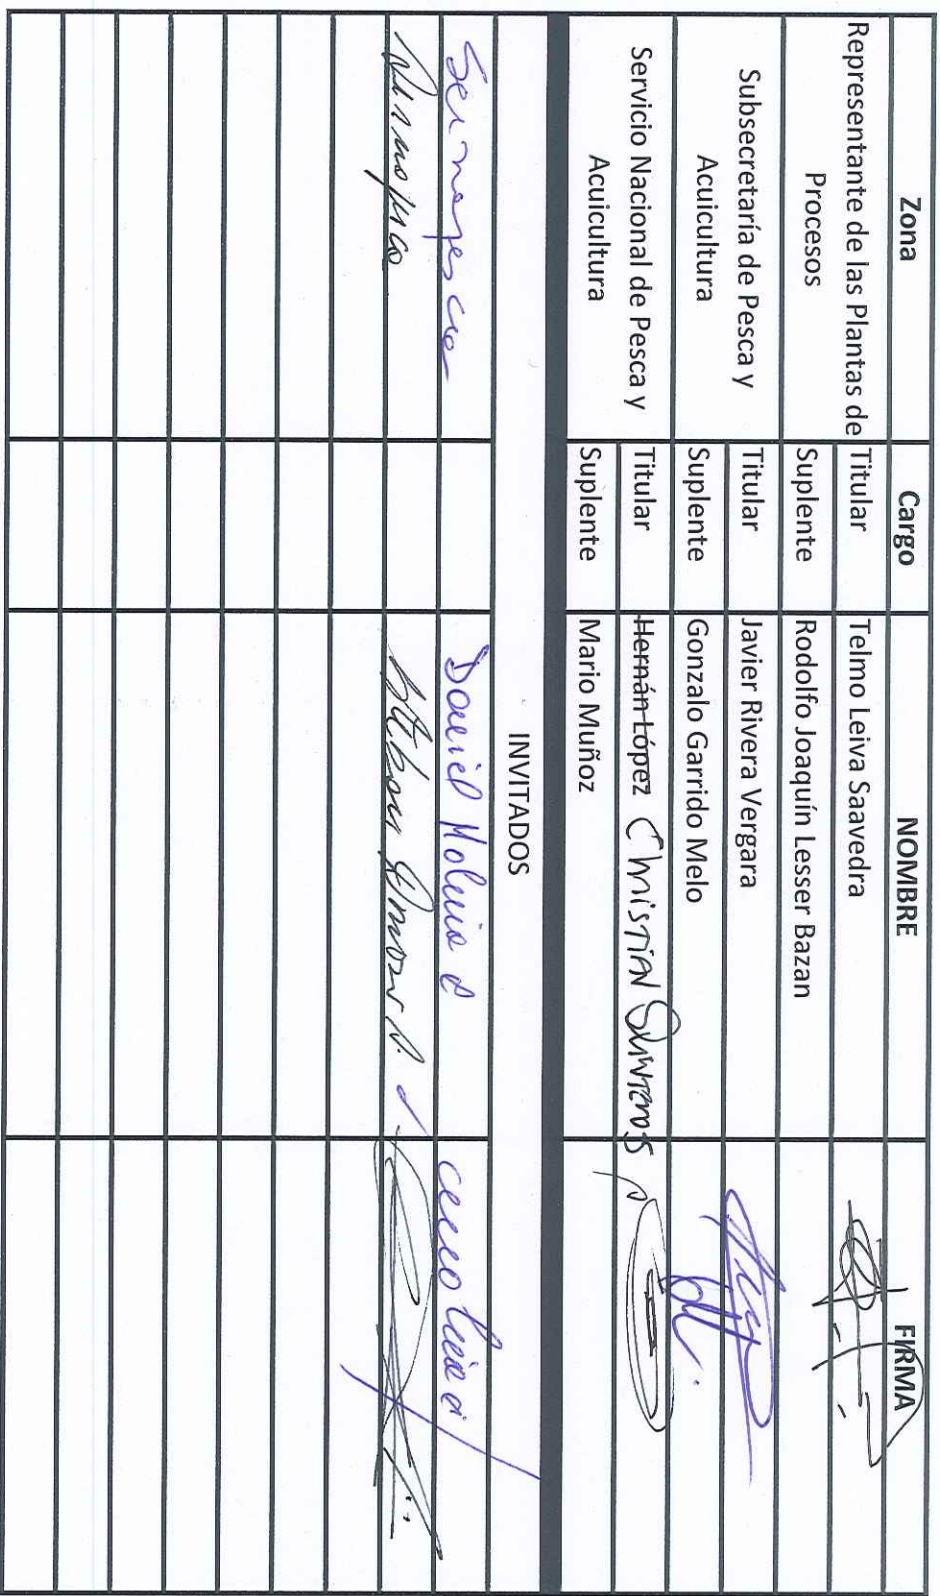 Zona Cargo NOMBRE FIRMA
Representante de las Plantas de Procesos Titular Telmo Leiva Saavedra
Suplente Rodolfo Joaquín Lesser Bazan
Subsecretaría de Pesca y Acuicultura Titular Javier Rivera Vergara
Suplente Gonzalo Garrido Melo
Servicio Nacional de Pesca y Acuicultura Titular Hernán López Christian
Suplente Mario Muñoz
INVITADOS
Sernapesca Daniel Molina
Sernapesca